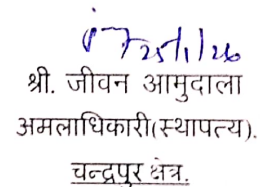 25/1/26
श्री. जीवन आमुदाला
अमलाधिकारी(स्थापत्य).
चन्द्रपुर क्षेत्र.